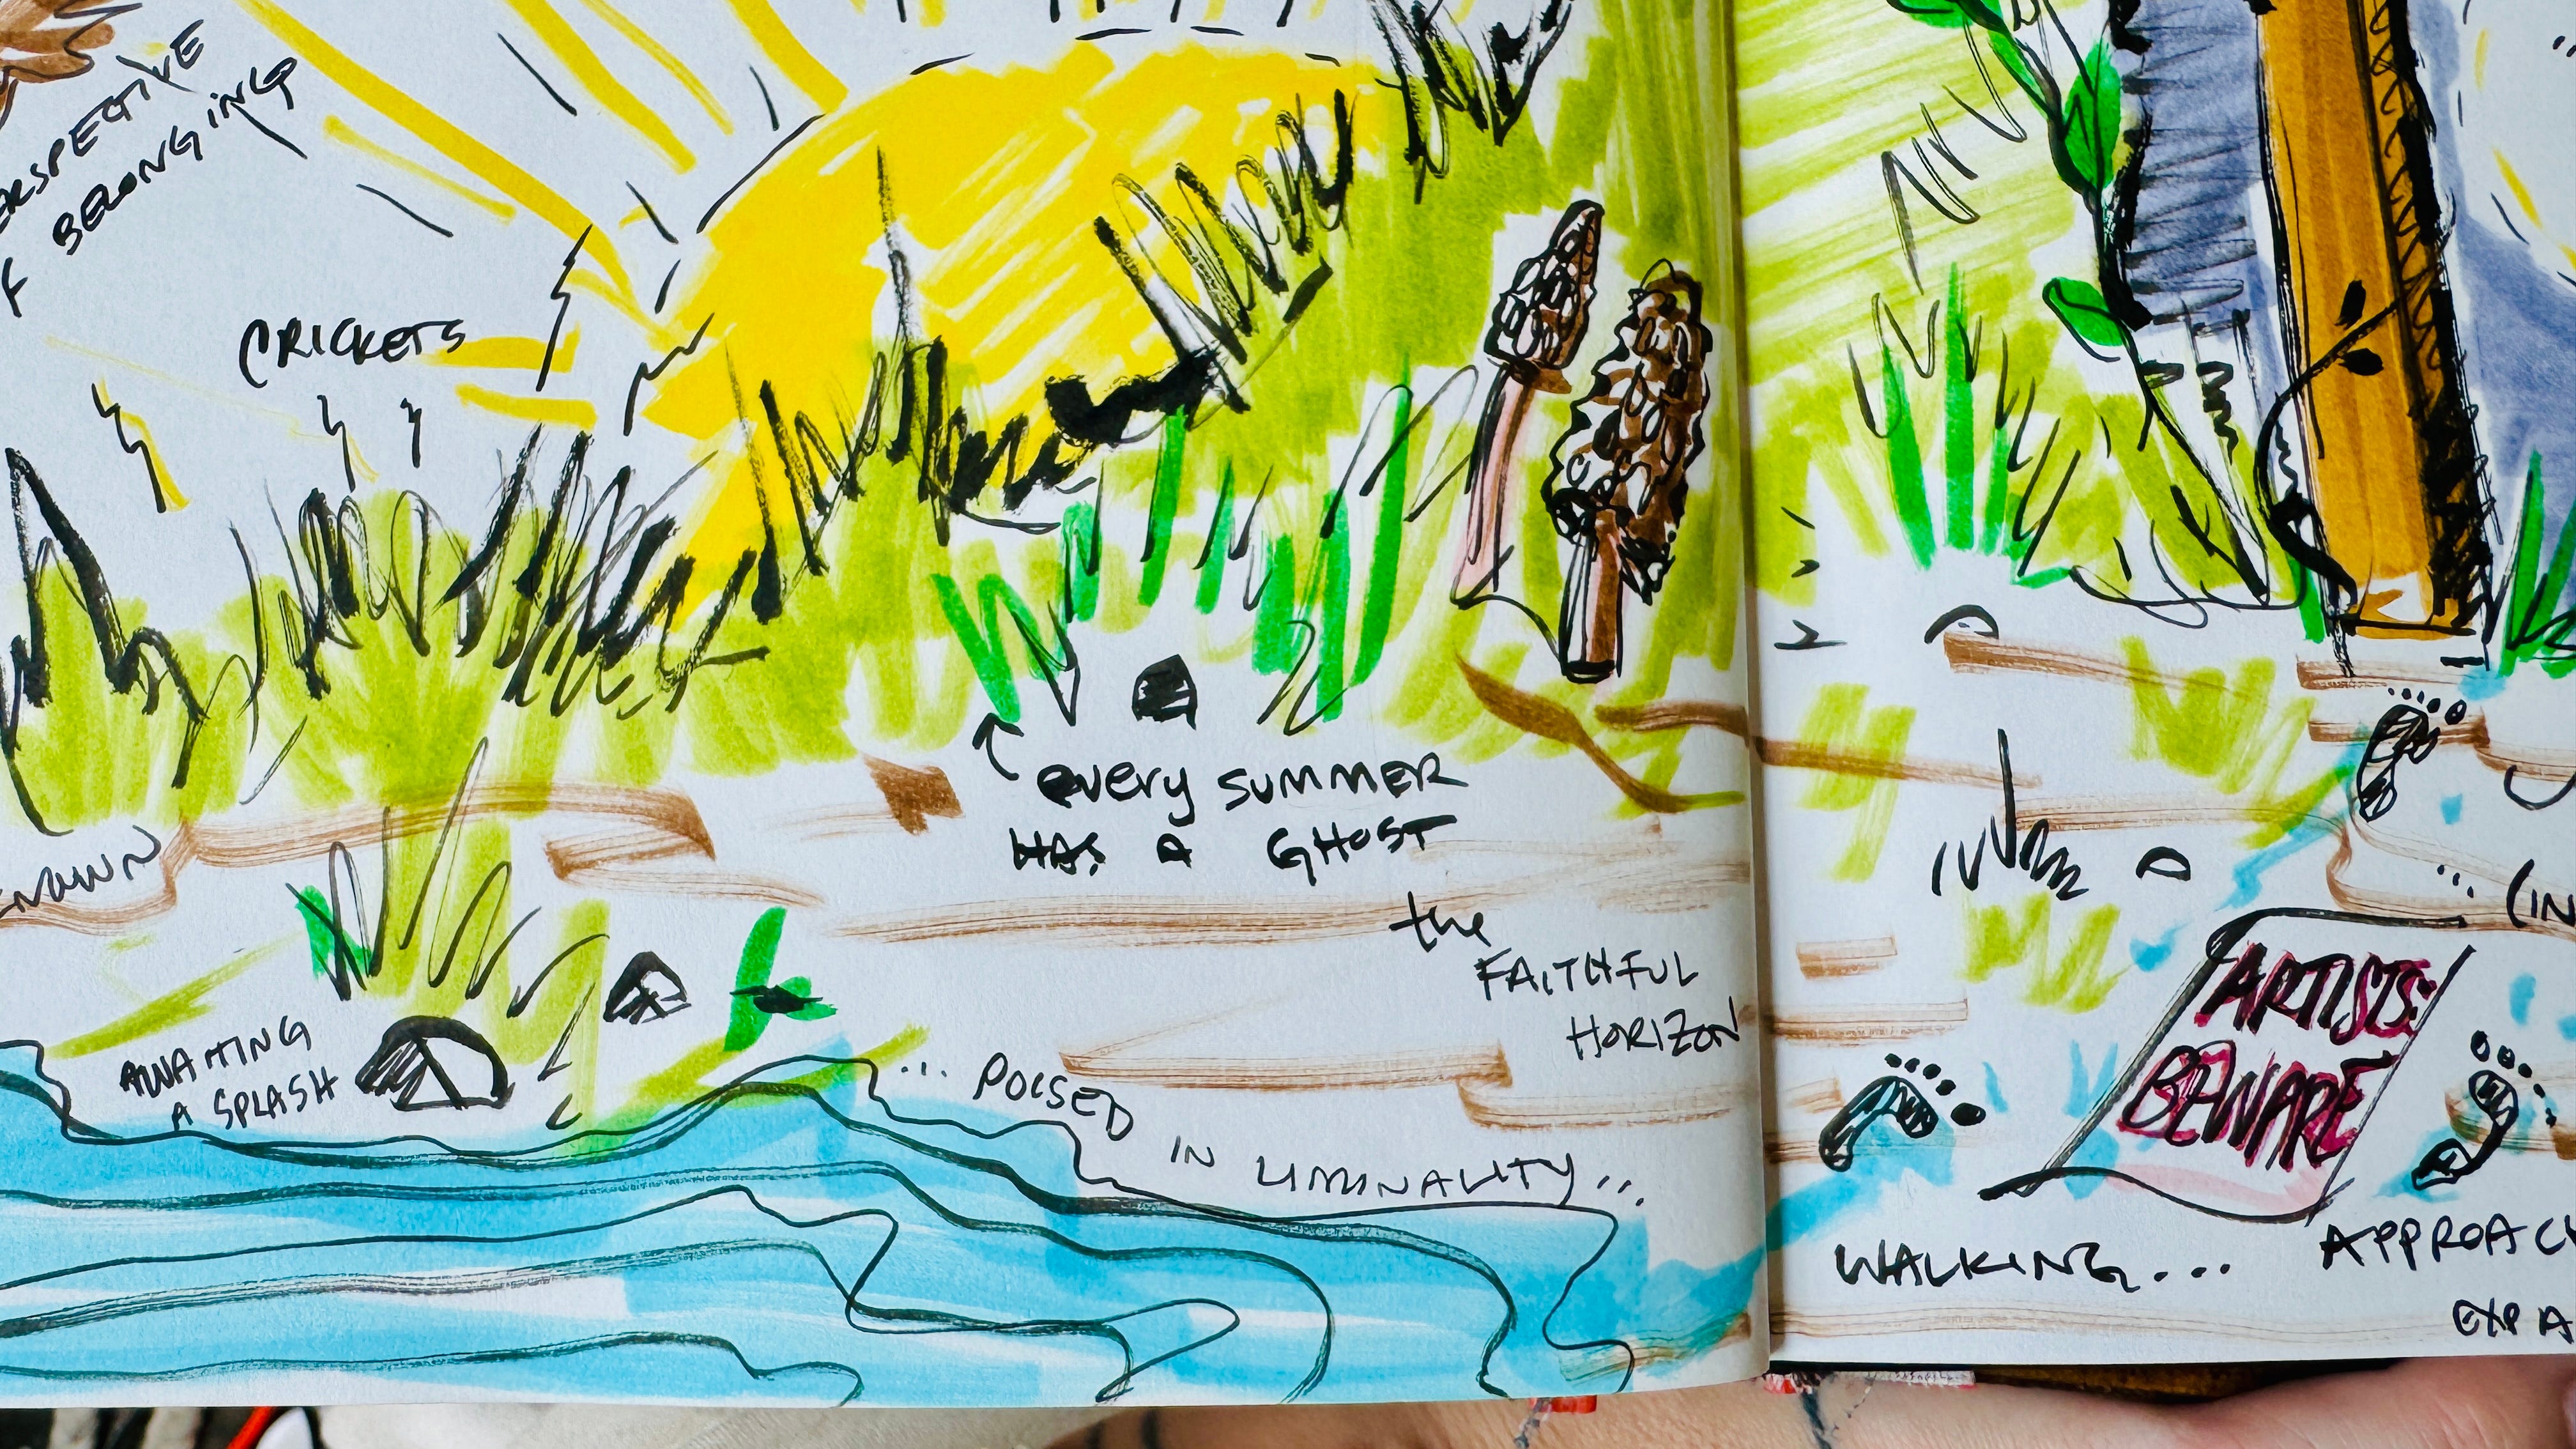 PERSPECTIVE
BELONGING
CRICKETS
every SUMMER
HAS A GHOST
the
FAITHFUL
HORIZON
AWAITING
A SPLASH
... POISED
IN LIMINALITY...
... (IN
ARTISTS:
BEWARE
WALKING...
APPROACH
EXPA